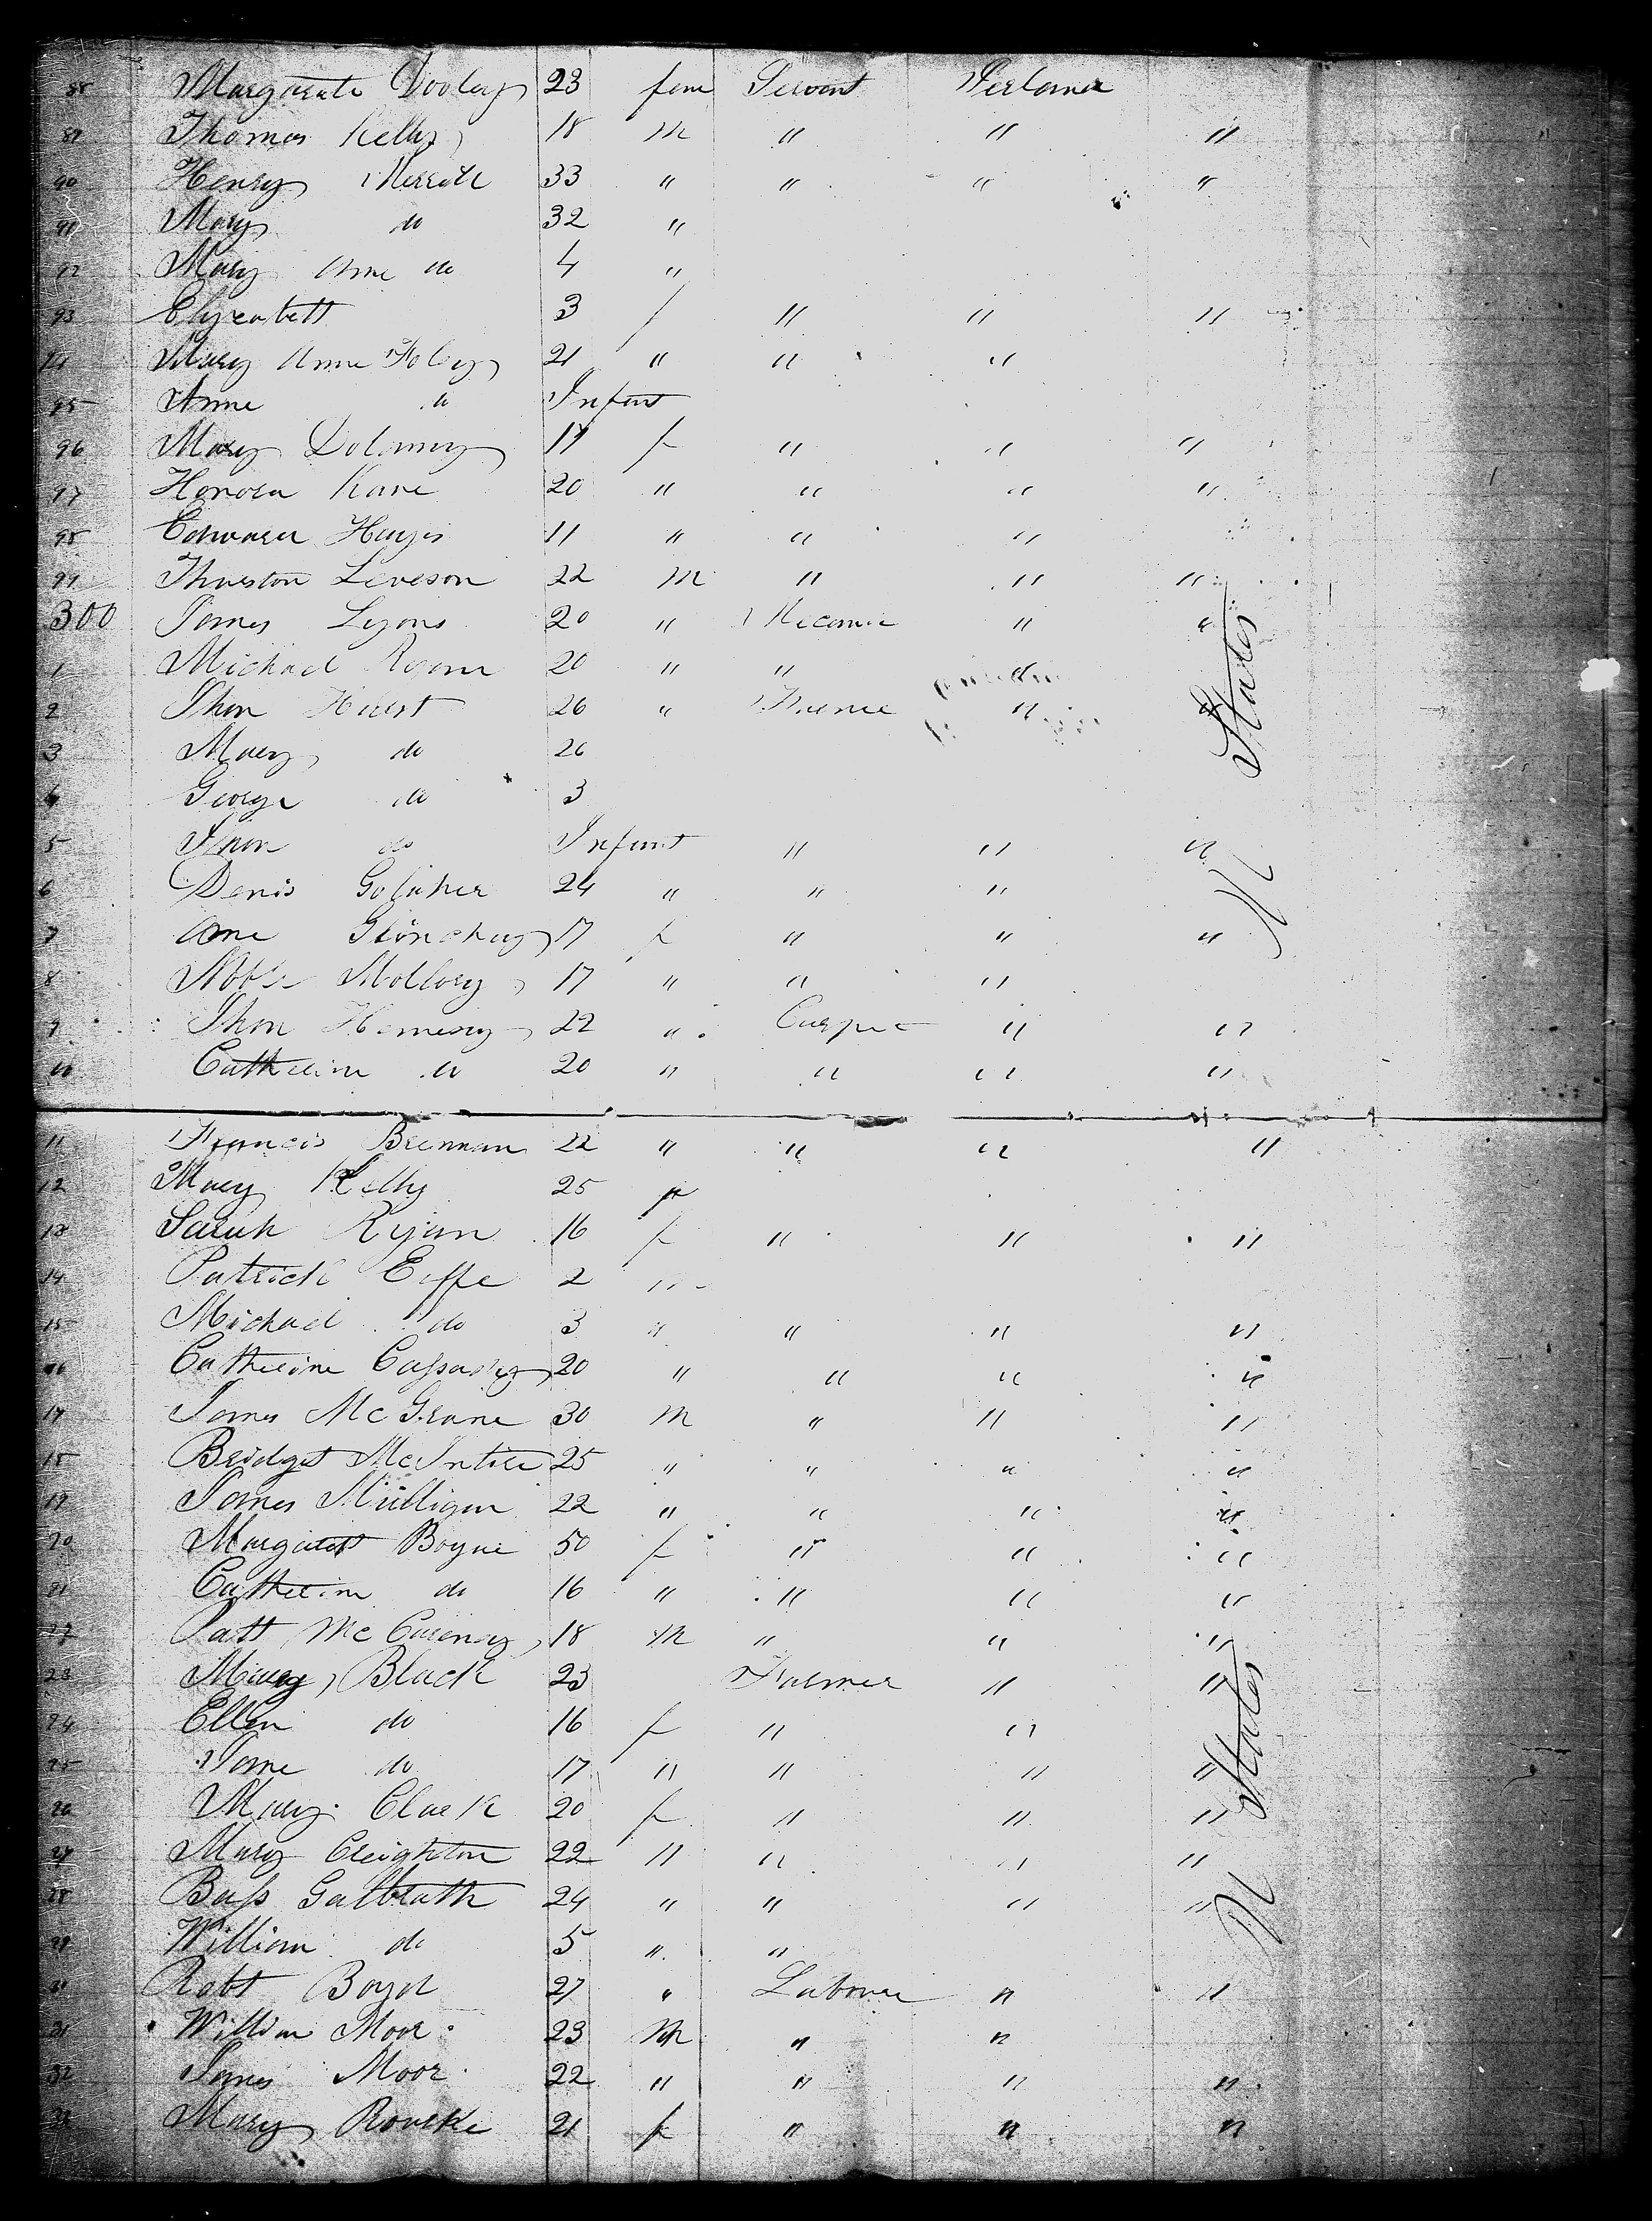 88 Margarate Dooley 23 fem Servent Ierland
89 Thomas Kelly 18 m " " "
90 Henry 33 " " " "
91 Mary do 32 "
92 Mary Anne do 4 "
93 Elizabett 3 f " " "
94 Mary Anne Foley 21 " " "
95 Anne do Infant
96 Mary Dolaney 17 f " " "
97 Honora Kane 20 " " " "
98 Edward Hayes 11 " " "
99 Thurston Leveson 22 m " " "
300 James Lyons 20 " Mecanic " "
1 Michael Ryan 20 " " "
2 Jhon Hurst 26 " " "
3 Mary do 26
4 George do 3
5 Jhon do Infant " " "
6 Denis Golaher 24 " " "
7 Anne 17 f " " "
8 Mollory 17 " " "
9 Jhon Hennesy 22 " " "
10 Catherine do 20 " " " "
11 Francis Brennan 22 " " " "
12 Mary Kelly 25 "
13 Sarah Ryan 16 f " " "
14 Patrick Eiffe 2 "
15 Michael do 3 " " " "
16 Catherine Cassady 20 " " " "
17 James McGrane 30 m " " "
18 Bridget McIntire 25 " " " "
19 James Mulligan 22 " " " "
20 Margatett Boyne 50 f " " "
21 Catherine do 16 " " " "
22 Patt McCareney 18 m " " "
23 Mary Black 23 Farmer " "
24 Ellen do 16 f " "
25 Jane do 17 " " " "
26 Mary Clark 20 f " " "
27 Mary Creighton 22 " " " "
28 Bess Galbrath 24 " " " "
29 William do 5 " "
30 Robt Boyd 27 " Labourer " "
31 William Moor 23 m " "
32 James Moor 22 " " " "
33 Mary Rourke 21 f " " "
U States
U States